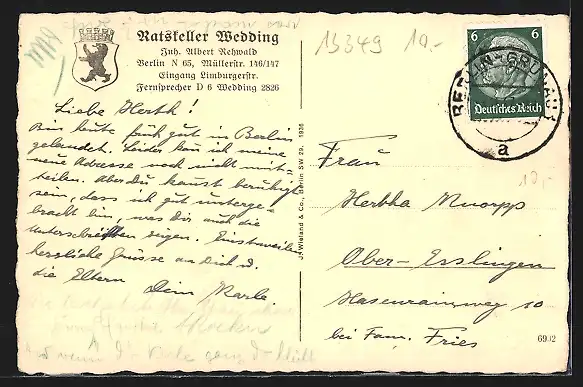 Ratskeller Wedding
Inh. Albert Rehwald
Berlin N 65, Müllerstr. 146/147
Eingang Limburgerstr.
Fernsprecher D 6 Wedding 2826
13349 10.-
6 6
Deutsches Reich
BERLIN-GRÜNAU
a
Liebe Herth!
Bin heute früh gut in Berlin
gelandet. Leider kan ich meine
neue Adresse noch nicht mit-
teilen. Aber Du kanst beruhigt
sein, dass ich gut unterge-
bracht bin, was Dir auch die
Unterschriften zeigen. Einstweilen
herzliche Grüsse an Dich u.
die Eltern Dein Karle.
J. Wieland & Co., Berlin SW 29. 1936
Frau
Hertha Knorpp
Ober-Esslingen
Hasenrainweg 10
bei Fam. Fries
10,-
6902